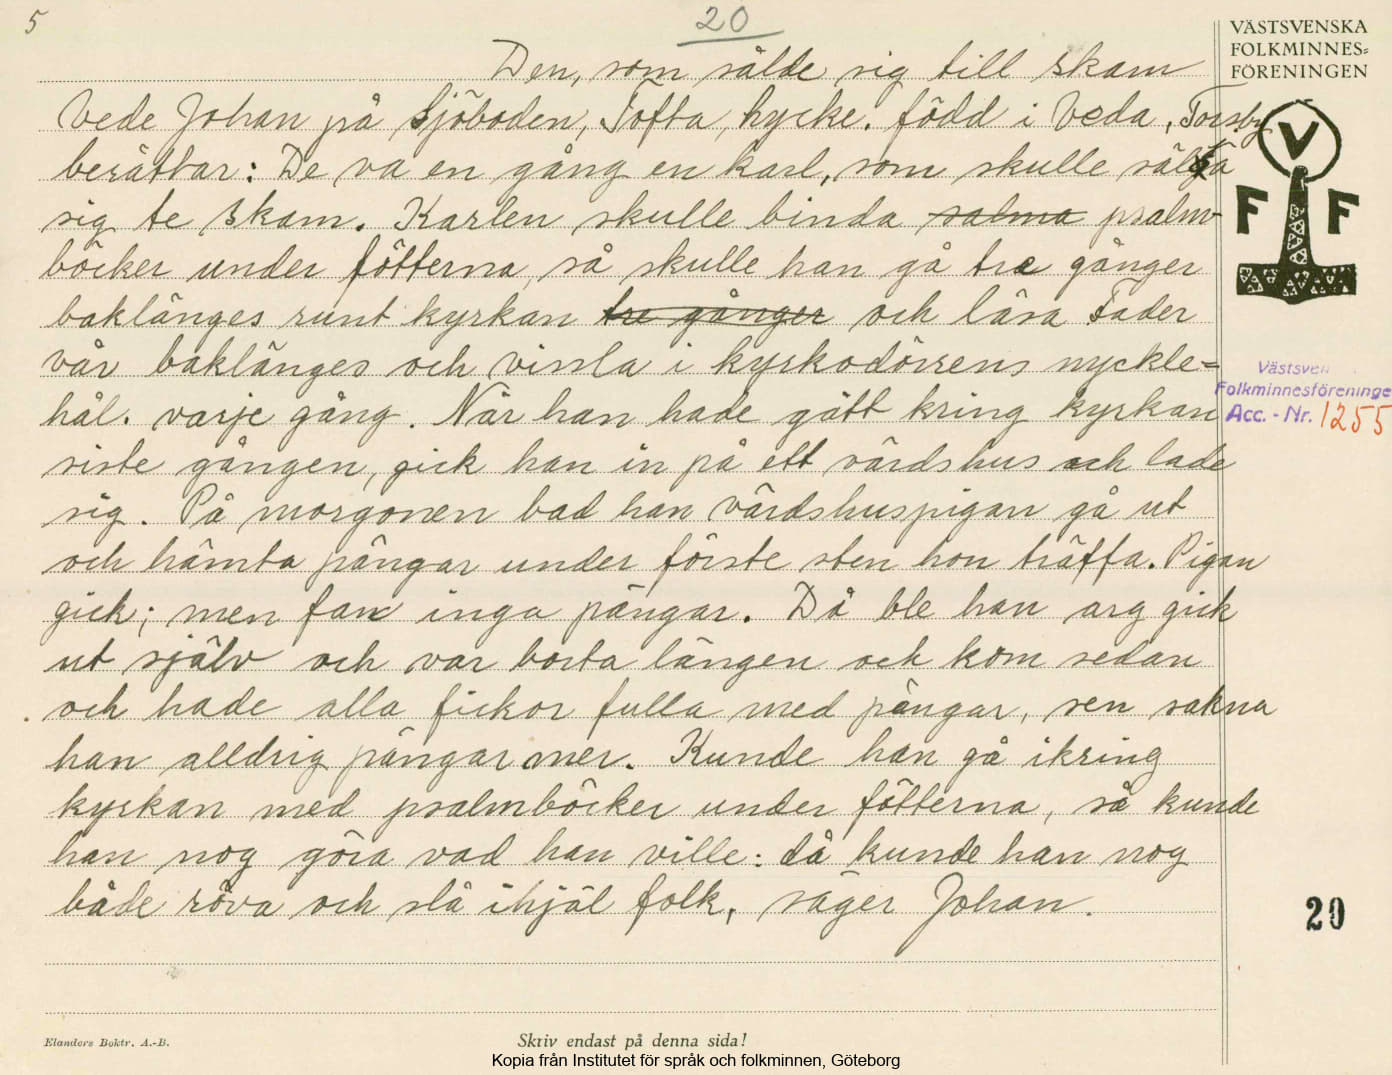 5
20
VÄSTSVENSKA
FOLKMINNES=
FÖRENINGEN
Den, som sålde sig till skam
Vede Johan på Sjöboden, Tofta, Lycke. född i Veda, Torsby
berättar: De va en gång en karl, som skulle sälja
sig te skam. Karlen skulle binda salma psalm-
böcker under fötterna, så skulle han gå tre gånger
baklänges runt kyrkan tre gånger och läsa Fader
vår baklänges och vissla i kyrkodörrens nyckle=
hål. varje gång. När han hade gått kring kyrkan
siste gången, gick han in på ett värdshus och lade
sig. På morgonen bad han värdshuspigan gå ut
och hämta pängar under förste sten hon träffa. Pigan
gick; men fan inga pängar. Då ble han arg gick
ut själv och var borta längen och kom sedan
och hade alla fickor fulla med pängar, sen sakna
han alldrig pängar mer. Kunde han gå ikring
kyrkan med psalmböcker under fötterna, så kunde
han nog göra vad han ville: då kunde han nog
både röva och slå ihjäl folk, säger Johan.
V
F F
Västsven
Folkminnesföreninge
Acc. - Nr. 1255
20
Elanders Boktr. A.-B.
Skriv endast på denna sida!
Kopia från Institutet för språk och folkminnen, Göteborg